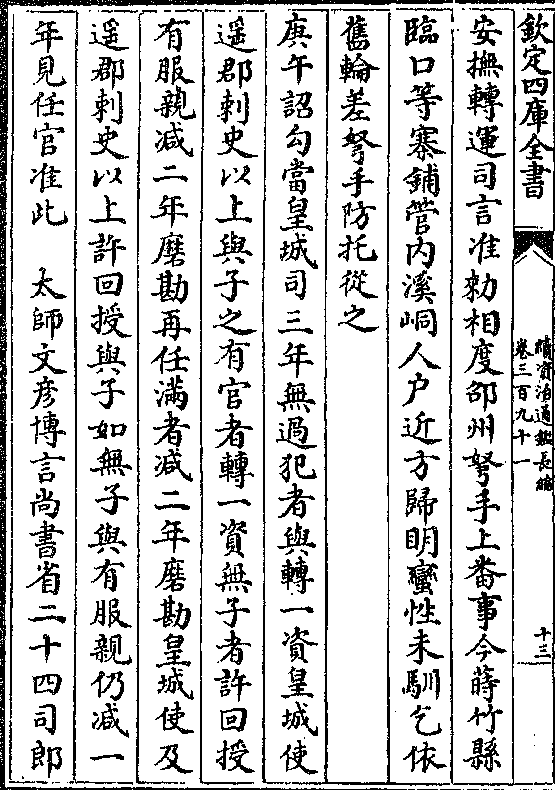 欽定四庫全書
續資治通鑑長編
卷三百九十一
十三
安撫轉運司言准勅相度邵州弩手上畨事今蒔竹縣
臨口等寨鋪管内溪峒人户近方歸明蠻性未馴乞依
舊輪差弩手防托從之
庚午詔勾當皇城司三年無過犯者與轉一資皇城使
遥郡刺史以上與子之有官者轉一資無子者許回授
有服親減二年磨勘再任滿者減二年磨勘皇城使及
遥郡刺史以上許回授與子如無子與有服親仍減一
年見任官准此　太師文彦博言尚書省二十四司郎